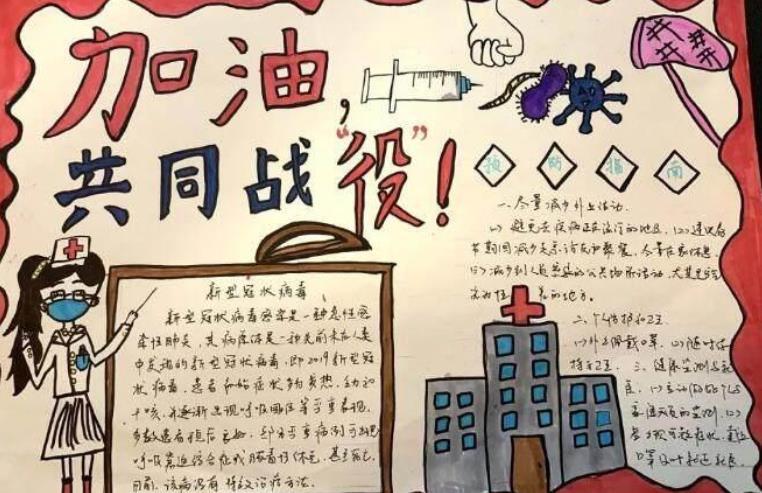 加油,
共同战“役”!
预防指南
一、尽量减少外出活动.
(1) 避免去疾病正在流行的地区. (2) 建议春
节期间减少走亲访友和聚餐, 尽量在家休息.
(3) 减少到人员密集的公共场所活动, 尤其是空气
的地方。
二、个人防护和卫
(1) 外出佩戴口罩. (2) 随时保
持手卫生. 三、健康监测与就
医. (1) 主动
(2)
新型冠状病毒
新型冠状病毒感染是一种急性感
染性肺炎, 其病原体是一种先前未在人类
中发现的新型冠状病毒, 即2019新型冠
状病毒. 患者初始症状多为发热、乏力和
干咳, 并逐渐出现呼吸困难等严重表现.
多数患者预后 , 部分严重病例可出现
呼吸窘迫综合征或脓毒性休克, 甚至死亡.
目前, 该病没有特效治疗方法.